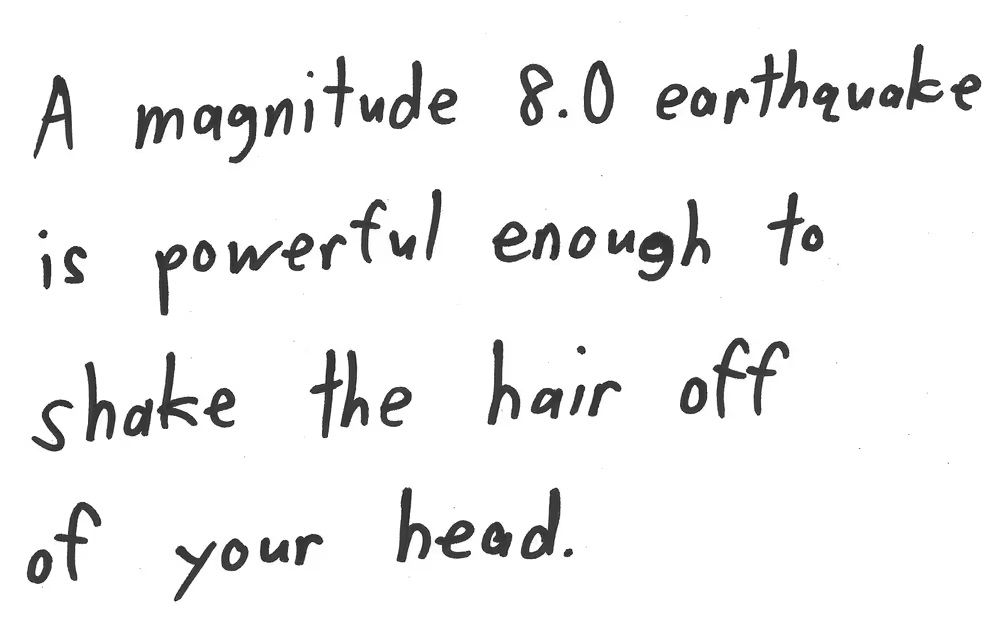 A magnitude 8.0 earthquake
is powerful enough to
shake the hair off
of your head.